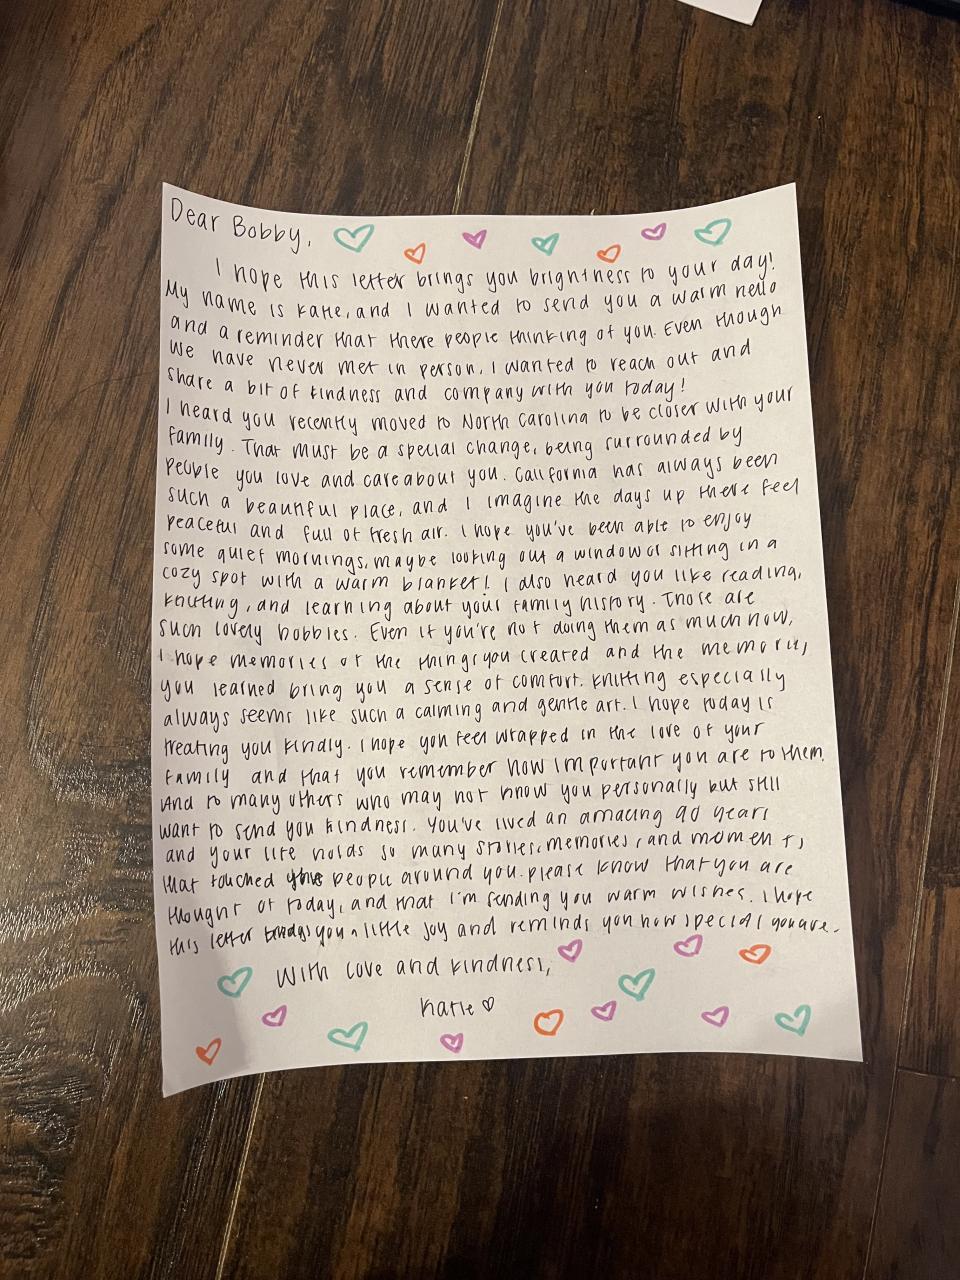 Dear Bobby,
I hope this letter brings you brightness to your day!
My name is Katie, and I wanted to send you a warm hello
and a reminder that there people thinking of you. Even though
we have never met in person, I wanted to reach out and
share a bit of kindness and company with you today!
I heard you recently moved to North Carolina to be closer with your
family. That must be a special change, being surrounded by
people you love and care about you. California has always been
such a beautiful place, and I imagine the days up there feel
peaceful and full of fresh air. I hope you've been able to enjoy
some quiet mornings, maybe looking out a window or sitting in a
cozy spot with a warm blanket! I also heard you like reading,
knitting, and learning about your family history. Those are
such lovely hobbies. Even if you're not doing them as much now,
I hope memories of the things you created and the memories
you learned bring you a sense of comfort. Knitting especially
always seems like such a calming and gentle art. I hope today is
treating you kindly. I hope you feel wrapped in the love of your
family and that you remember how important you are to them.
And to many others who may not know you personally but still
want to send you kindness. You've lived an amazing 90 years
and your life holds so many stories, memories, and moments
that touched people around you. please know that you are
thought of today, and that I'm sending you warm wishes. I hope
this letter brings you a little joy and reminds you how special you are.
With love and kindness,
Katie ♡